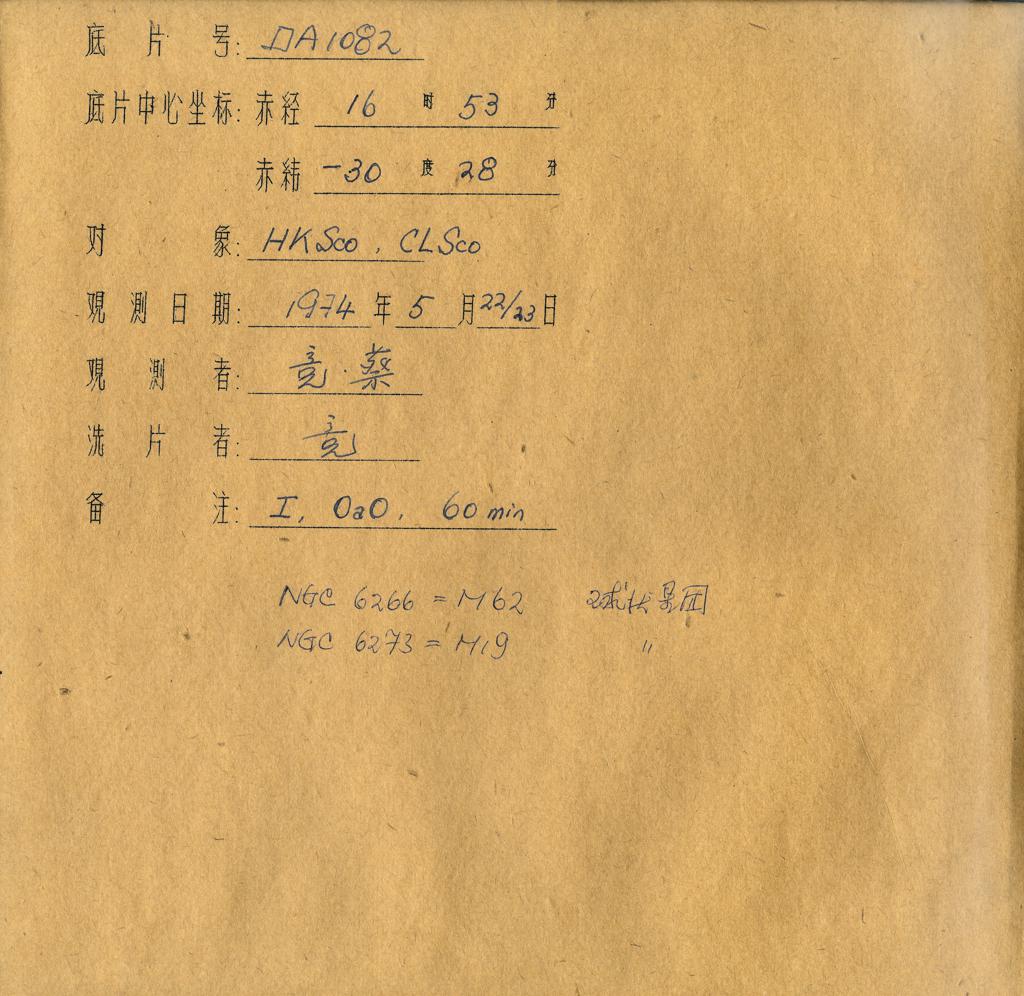 底片号: DA1082
底片中心坐标: 赤经 16 时 53 分
赤纬 -30 度 28 分
对象: HKSco, CLSco
观测日期: 1974 年 5 月 22/23 日
观测者: 竟·蔡
洗片者: 竟
备注: I, OaO, 60 min
NGC 6266 = M62 球状星团
NGC 6273 = M19 〃